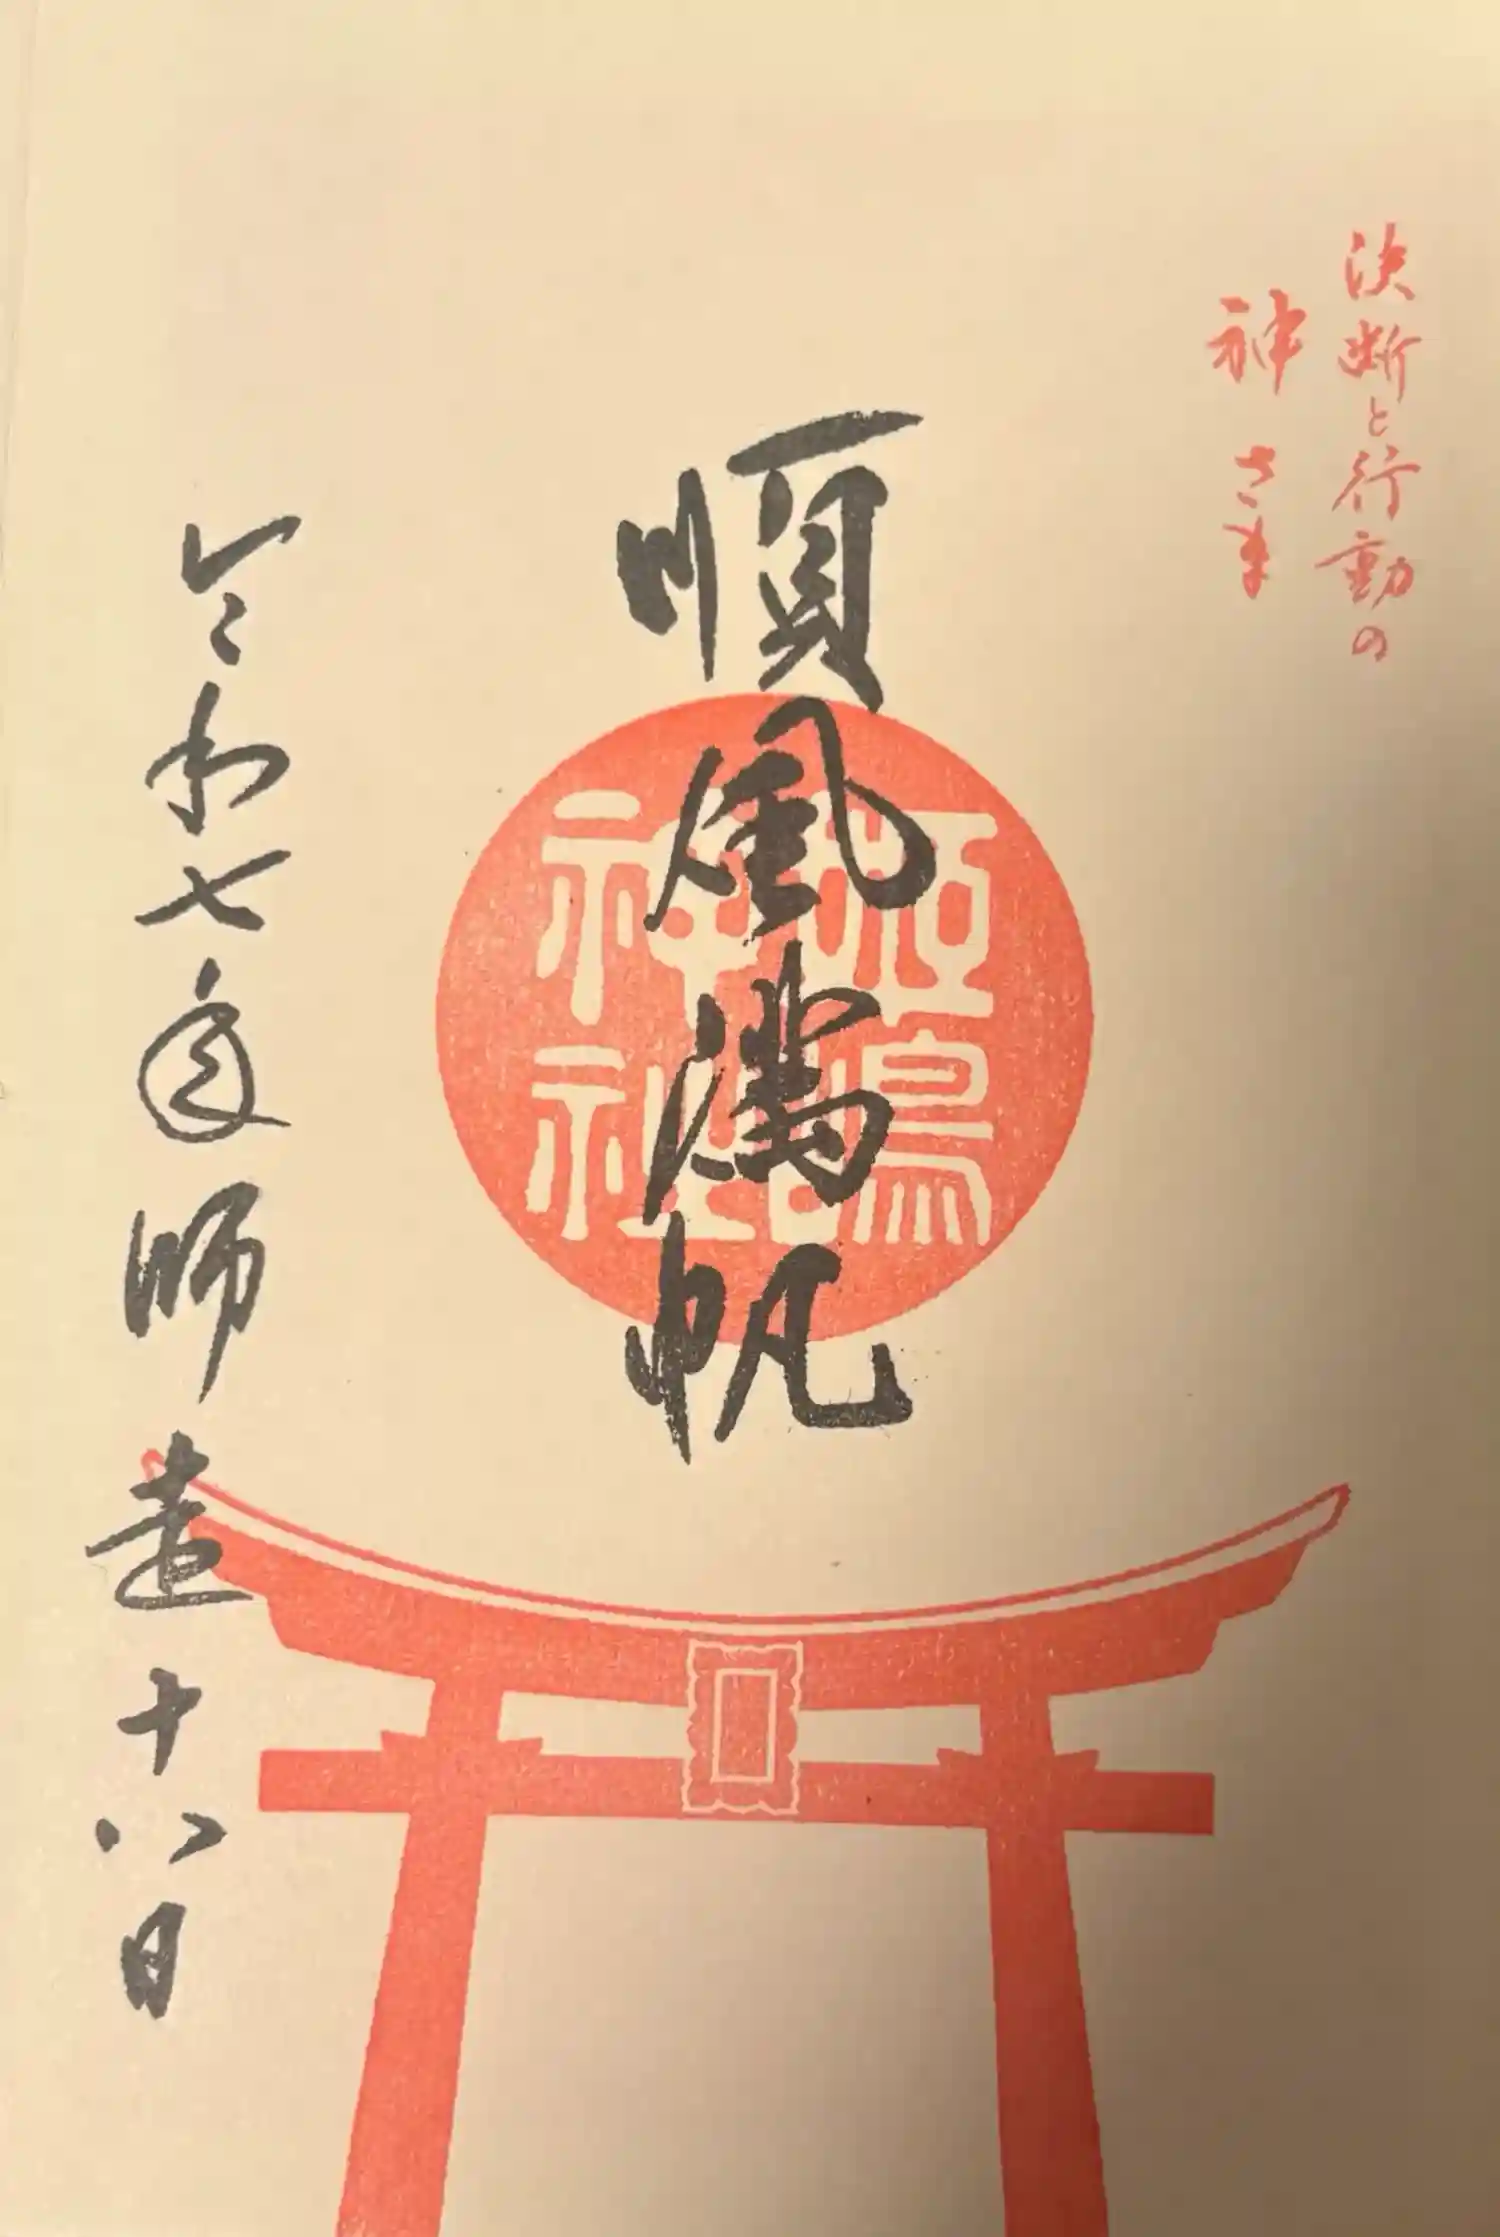 決断と行動の
神さま
順風満帆
姫嶋
神社
令和七年師走十八日